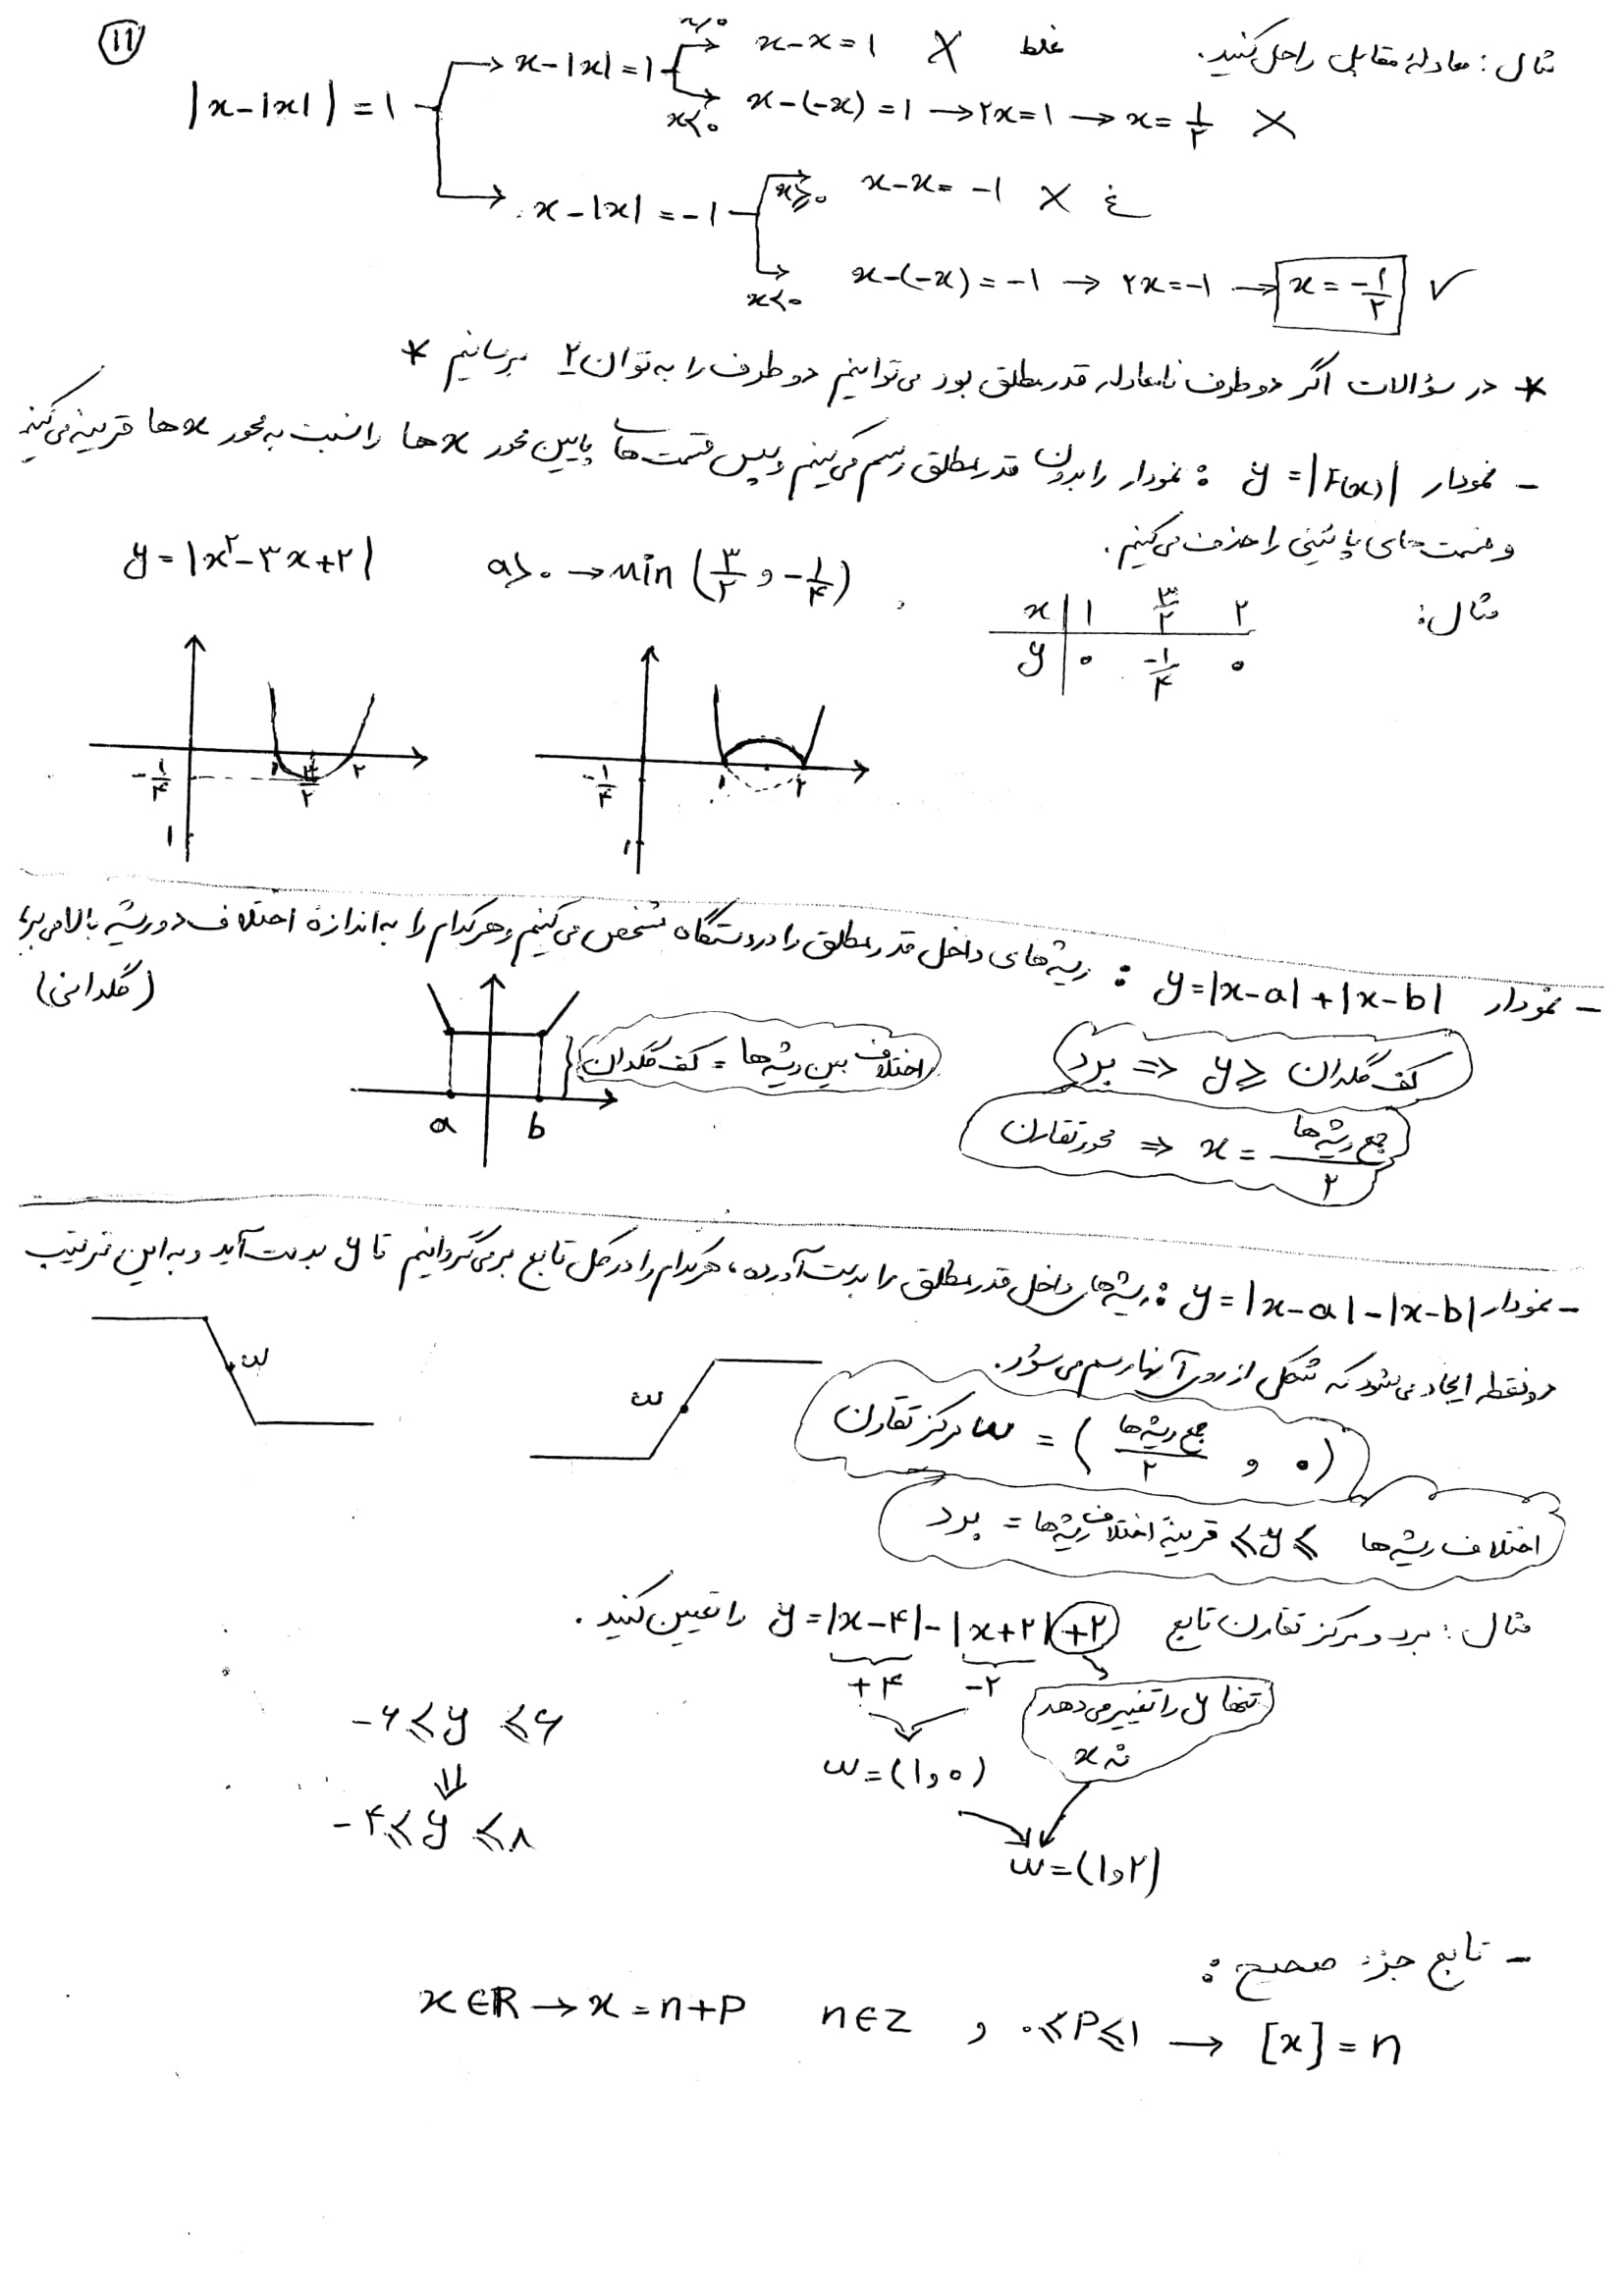 ۱۱
مثال : معادلهٔ مقابل را حل کنید.
|x-|x|| = 1 → x-|x| = 1 → x≥۰ x-x = 1 ✗ غلط
x<۰ x-(-x) = 1 → ۲x = 1 → x = ۱/۲ ✗
→ x-|x| = -1 → x≥۰ x-x = -1 ✗ غ
x<۰ x-(-x) = -1 → ۲x = -1 → x = -۱/۲ ✓
* در سؤالات اگر دو طرف نامعادله قدرمطلق بود می‌توانیم دو طرف را به توان ۲ برسانیم *
- نمودار y = |F(x)| : نمودار را بدون قدرمطلق رسم می‌کنیم و سپس قسمت‌های پایین محور x ها را نسبت به محور x ها قرینه می‌کنیم
و قسمت‌های پائینی را حذف می‌کنیم.
مثال:
y = |x²-۳x+۲| a>۰ → min (۳/۲ , -۱/۴)
x | ۱ ۳/۲ ۲
y | ۰ -۱/۴ ۰
-۱/۴ ۱ ۳/۲ ۲ ۱
-۱/۴ ۱ ۲ ۱
- نمودار y=|x-a|+|x-b| : ریشه‌های داخل قدرمطلق را در دستگاه مشخص می‌کنیم و هر کدام را به اندازهٔ اختلاف دو ریشه بالا می‌بریم
(گلدانی)
اختلاف بین ریشه‌ها = کف گلدان
کف گلدان ≤ y ⇐ برد
محور تقارن ⇒ x = جمع ریشه‌ها / ۲
a b
- نمودار y = |x-a|-|x-b| : ریشه‌های داخل قدرمطلق را بدست آورده، هر کدام را در کل تابع برمی‌گردانیم تا y بدست آید و به این ترتیب
دو نقطه ایجاد می‌شود که شکل از روی آنها رسم می‌شود.
ω ω
مرکز تقارن ω = (جمع ریشه‌ها / ۲ , ۰)
اختلاف ریشه‌ها ≥ y ≥ قرینهٔ اختلاف ریشه‌ها = برد
مثال : برد و مرکز تقارن تابع y = |x-۴|-|x+۲|+۲ را تعیین کنید.
+۴ -۲
تنها y را تغییر می‌دهد
نه x
-۶ ≤ y ≤ ۶
ω = (۱,۰)
⇓
-۴ ≤ y ≤ ۸
ω = (۱,۲)
- تابع جزء صحیح :
x∈R → x = n+P n∈Z , ۰≤P≤۱ → [x] = n